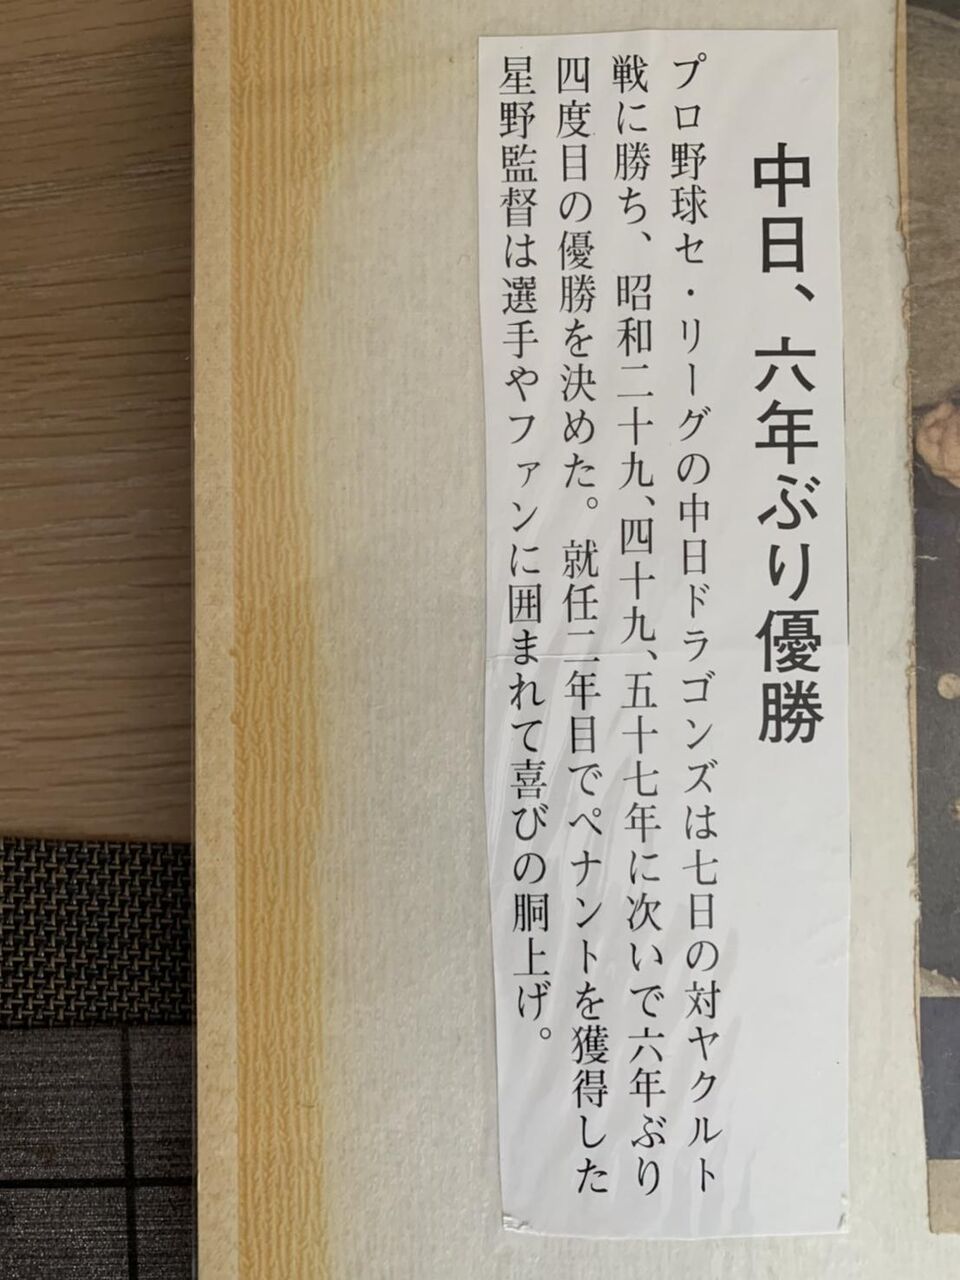 中日、六年ぶり優勝
プロ野球セ・リーグの中日ドラゴンズは七日の対ヤクルト
戦に勝ち、昭和二十九、四十九、五十七年に次いで六年ぶり
四度目の優勝を決めた。就任二年目でペナントを獲得した
星野監督は選手やファンに囲まれて喜びの胴上げ。